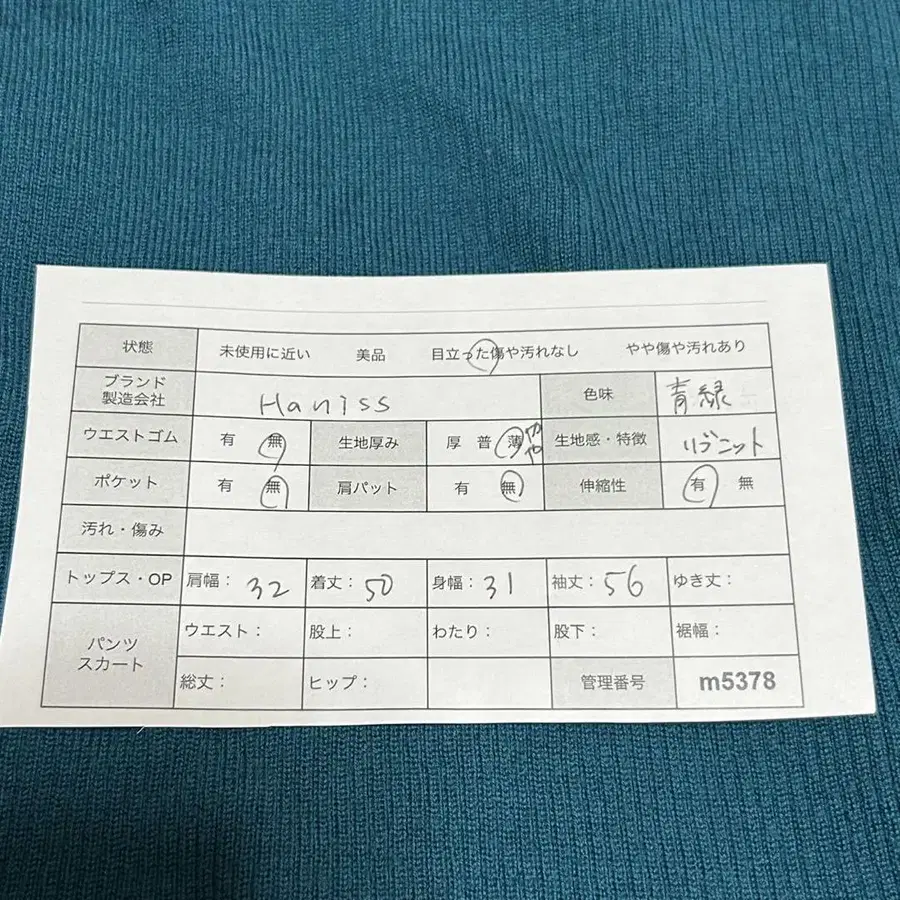 状態 未使用に近い 美品 目立った傷や汚れなし やや傷や汚れあり
ブランド 製造会社 Haniss 色味 青緑
ウエストゴム 有 無 生地厚み 厚 普 薄 やや 生地感・特徴 リブニット
ポケット 有 無 肩パット 有 無 伸縮性 有 無
汚れ・傷み
トップス・OP 肩幅: 32 着丈: 50 身幅: 31 袖丈: 56 ゆき丈:
パンツ スカート ウエスト: 股上: わたり: 股下: 裾幅:
総丈: ヒップ: 管理番号 m5378